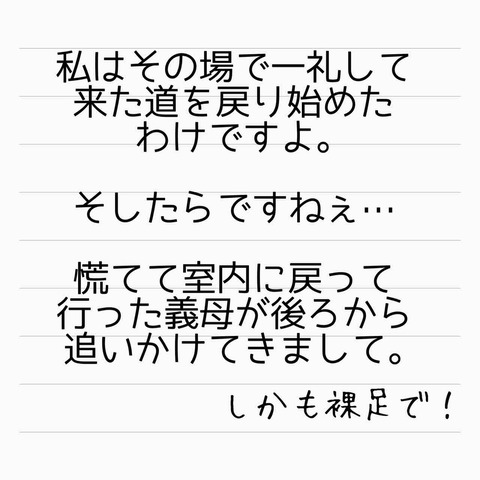 私はその場で一礼して
来た道を戻り始めた
わけですよ。
そしたらですねぇ…
慌てて室内に戻って
行った義母が後ろから
追いかけてきまして。
しかも裸足で！